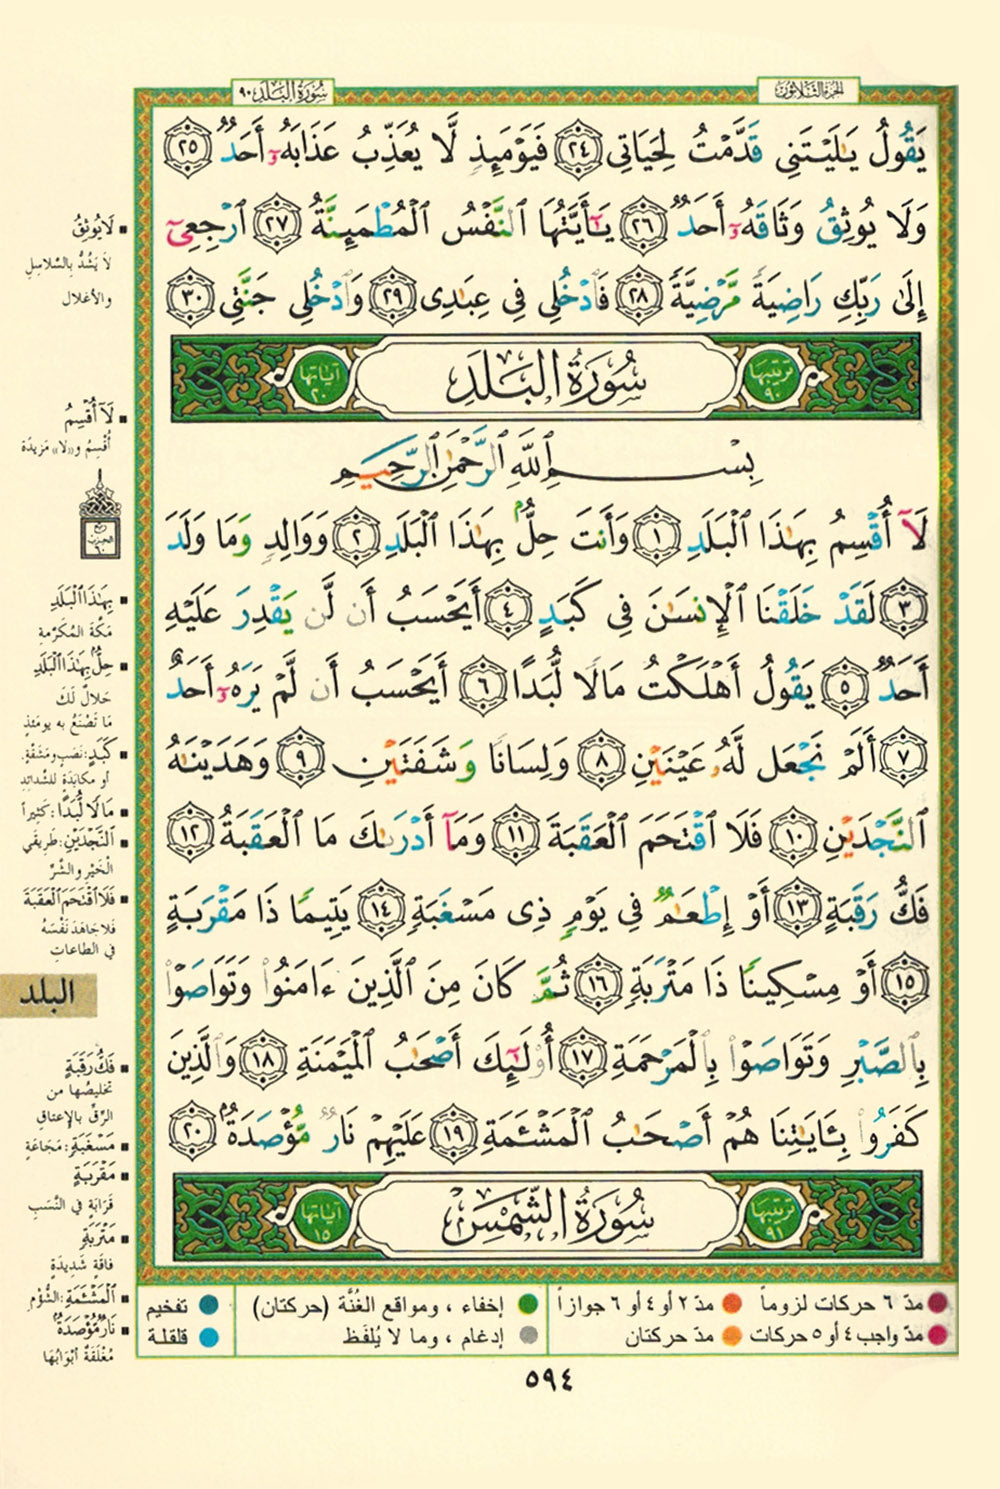 سُورَةُ البَلَدِ ٩٠
الجُزءُ الثَّلَاثُونَ
يَقُولُ يَٰلَيْتَنِى قَدَّمْتُ لِحَيَاتِى ٢٤ فَيَوْمَئِذٍ لَّا يُعَذِّبُ عَذَابَهُۥٓ أَحَدٌ ٢٥
وَلَا يُوثِقُ وَثَاقَهُۥٓ أَحَدٌ ٢٦ يَٰٓأَيَّتُهَا ٱلنَّفْسُ ٱلْمُطْمَئِنَّةُ ٢٧ ٱرْجِعِىٓ
إِلَىٰ رَبِّكِ رَاضِيَةً مَّرْضِيَّةً ٢٨ فَٱدْخُلِى فِى عِبَٰدِى ٢٩ وَٱدْخُلِى جَنَّتِى ٣٠
ترتيبها ٩٠
سُورَةُ البَلَدِ
آياتها ٢٠
بِسْمِ ٱللَّهِ ٱلرَّحْمَٰنِ ٱلرَّحِيمِ
لَآ أُقْسِمُ بِهَٰذَا ٱلْبَلَدِ ١ وَأَنتَ حِلٌّۢ بِهَٰذَا ٱلْبَلَدِ ٢ وَوَالِدٍ وَمَا وَلَدَ
٣ لَقَدْ خَلَقْنَا ٱلْإِنسَٰنَ فِى كَبَدٍ ٤ أَيَحْسَبُ أَن لَّن يَقْدِرَ عَلَيْهِ
أَحَدٌ ٥ يَقُولُ أَهْلَكْتُ مَالًا لُّبَدًا ٦ أَيَحْسَبُ أَن لَّمْ يَرَهُۥٓ أَحَدٌ
٧ أَلَمْ نَجْعَل لَّهُۥ عَيْنَيْنِ ٨ وَلِسَانًا وَشَفَتَيْنِ ٩ وَهَدَيْنَٰهُ
ٱلنَّجْدَيْنِ ١٠ فَلَا ٱقْتَحَمَ ٱلْعَقَبَةَ ١١ وَمَآ أَدْرَىٰكَ مَا ٱلْعَقَبَةُ ١٢
فَكُّ رَقَبَةٍ ١٣ أَوْ إِطْعَٰمٌ فِى يَوْمٍ ذِى مَسْغَبَةٍ ١٤ يَتِيمًا ذَا مَقْرَبَةٍ
١٥ أَوْ مِسْكِينًا ذَا مَتْرَبَةٍ ١٦ ثُمَّ كَانَ مِنَ ٱلَّذِينَ ءَامَنُوا۟ وَتَوَاصَوْا۟
بِٱلصَّبْرِ وَتَوَاصَوْا۟ بِٱلْمَرْحَمَةِ ١٧ أُو۟لَٰٓئِكَ أَصْحَٰبُ ٱلْمَيْمَنَةِ ١٨ وَٱلَّذِينَ
كَفَرُوا۟ بِـَٔايَٰتِنَا هُمْ أَصْحَٰبُ ٱلْمَشْـَٔمَةِ ١٩ عَلَيْهِمْ نَارٌ مُّؤْصَدَةٌۢ ٢٠
ترتيبها ٩١
سُورَةُ الشَّمْسِ
آياتها ١٥
مدّ ٦ حركات لزوماً
مدّ ٢ أو ٤ أو ٦ جوازاً
مدّ واجب ٤ أو ٥ حركات
مدّ حركتان
إخفاء ، ومواقع الغُنَّة (حركتان)
إدغام ، وما لا يُلفَظ
تفخيم
قلقلة
٥٩٤
لَا يُوثِقُ
لَا يَشُدُّ بِالسَّلَاسِلِ
والأغلال
لَآ أُقْسِمُ
أُقْسِمُ و«لا» مَزيدَة
ربع
الحزب
٦٠
بِهَٰذَا ٱلْبَلَدِ
مَكَّةَ المُكَرَّمةِ
حِلٌّۢ بِهَٰذَا ٱلْبَلَدِ
حَلالٌ لَكَ
مَا تَصْنَعُ به يومَئذٍ
كَبَدٍ: نَصَبٍ ومَشَقَّةٍ
أو مكابَدَةٍ للشَّدائِدِ
مَالًا لُّبَدًا: كَثِيراً
ٱلنَّجْدَيْنِ: طَرِيقَي
الْخَيْرِ والشَّرِّ
فَلَا ٱقْتَحَمَ ٱلْعَقَبَةَ
فَلا جَاهَدَ نَفْسَهُ
في الطاعاتِ
البلد
فَكُّ رَقَبَةٍ
تَخليصُها من
الرِّقِّ بالإعتاقِ
مَسْغَبَةٍ: مَجَاعَةٍ
مَقْرَبَةٍ
قَرَابَةٍ في النَّسَبِ
مَتْرَبَةٍ
فَاقَةٍ شَدِيدَةٍ
ٱلْمَشْـَٔمَةِ: الشُّؤْمِ
نَارٌ مُّؤْصَدَةٌۢ
مُغْلَقَةٌ أَبْوَابُهَا